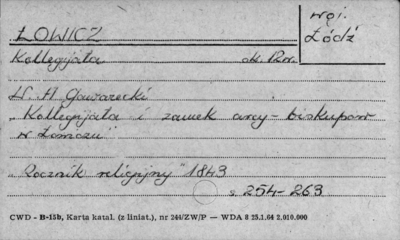 ŁOWICZ
woj.
Łódź
Kollegijata ok. 12 w.
W. H. Gawarecki
"Kollegijata i zamek arcy-biskupów
w Łowiczu"
"Rocznik religijny" 1843
s. 254-263
CWD - B-15b, Karta katal. (z liniat.), nr 244/ZW/P — WDA 8 25.1.64 2.010.000